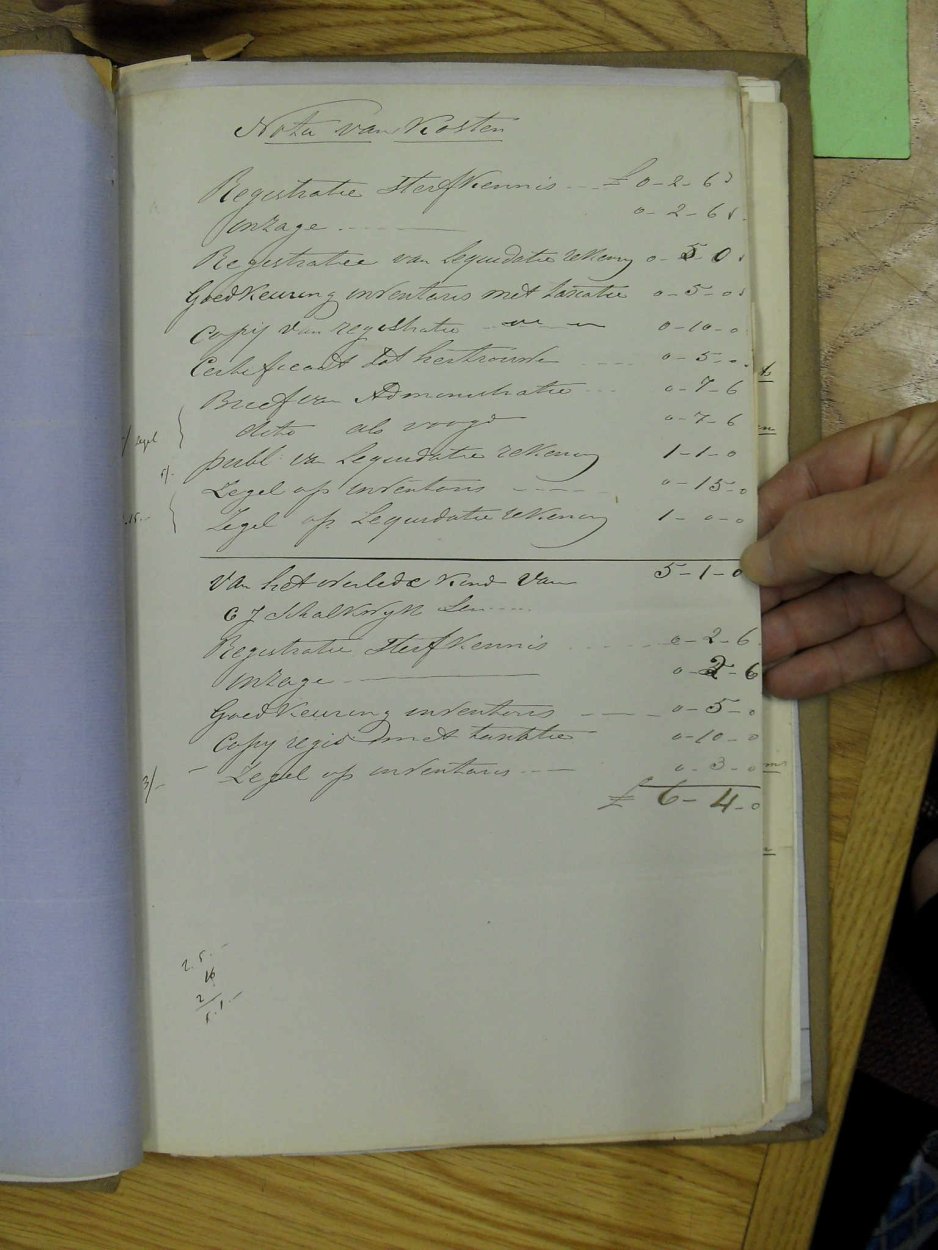 Nota van Kosten
Registratie Sterf Kennis - - £ 0-2-6
Inzage - - - - 0-2-6
Registratie van Lequidatie rekening 0-5-0
Goed Keuring inventaris met taxatie 0-5-0
Copij van registratie 0-10-0
Certificaat tot hertrouwe - - - 0-5-0
Brief van Administratie - - 0-7-6
dito als voogd 0-7-6
publ. van Lequidatie rekening 1-1-0
5/-
Zegel op inventaris - - - - 0-15-0
Zegel op Lequidatie rekening 1-0-0
Van het overlede Kind van 5-1-0
C J Schalkwyk Sen - - -
Registratie Sterf Kennis - - - - 0-2-6
Inzage 0-2-6
Goed Keuring inventaris - - - 0-5-0
Copy regis met taxatie 0-10-0
3/- - Zegel op inventaris - - - 0-3-0
£ 6-4-0
2.5.-
16